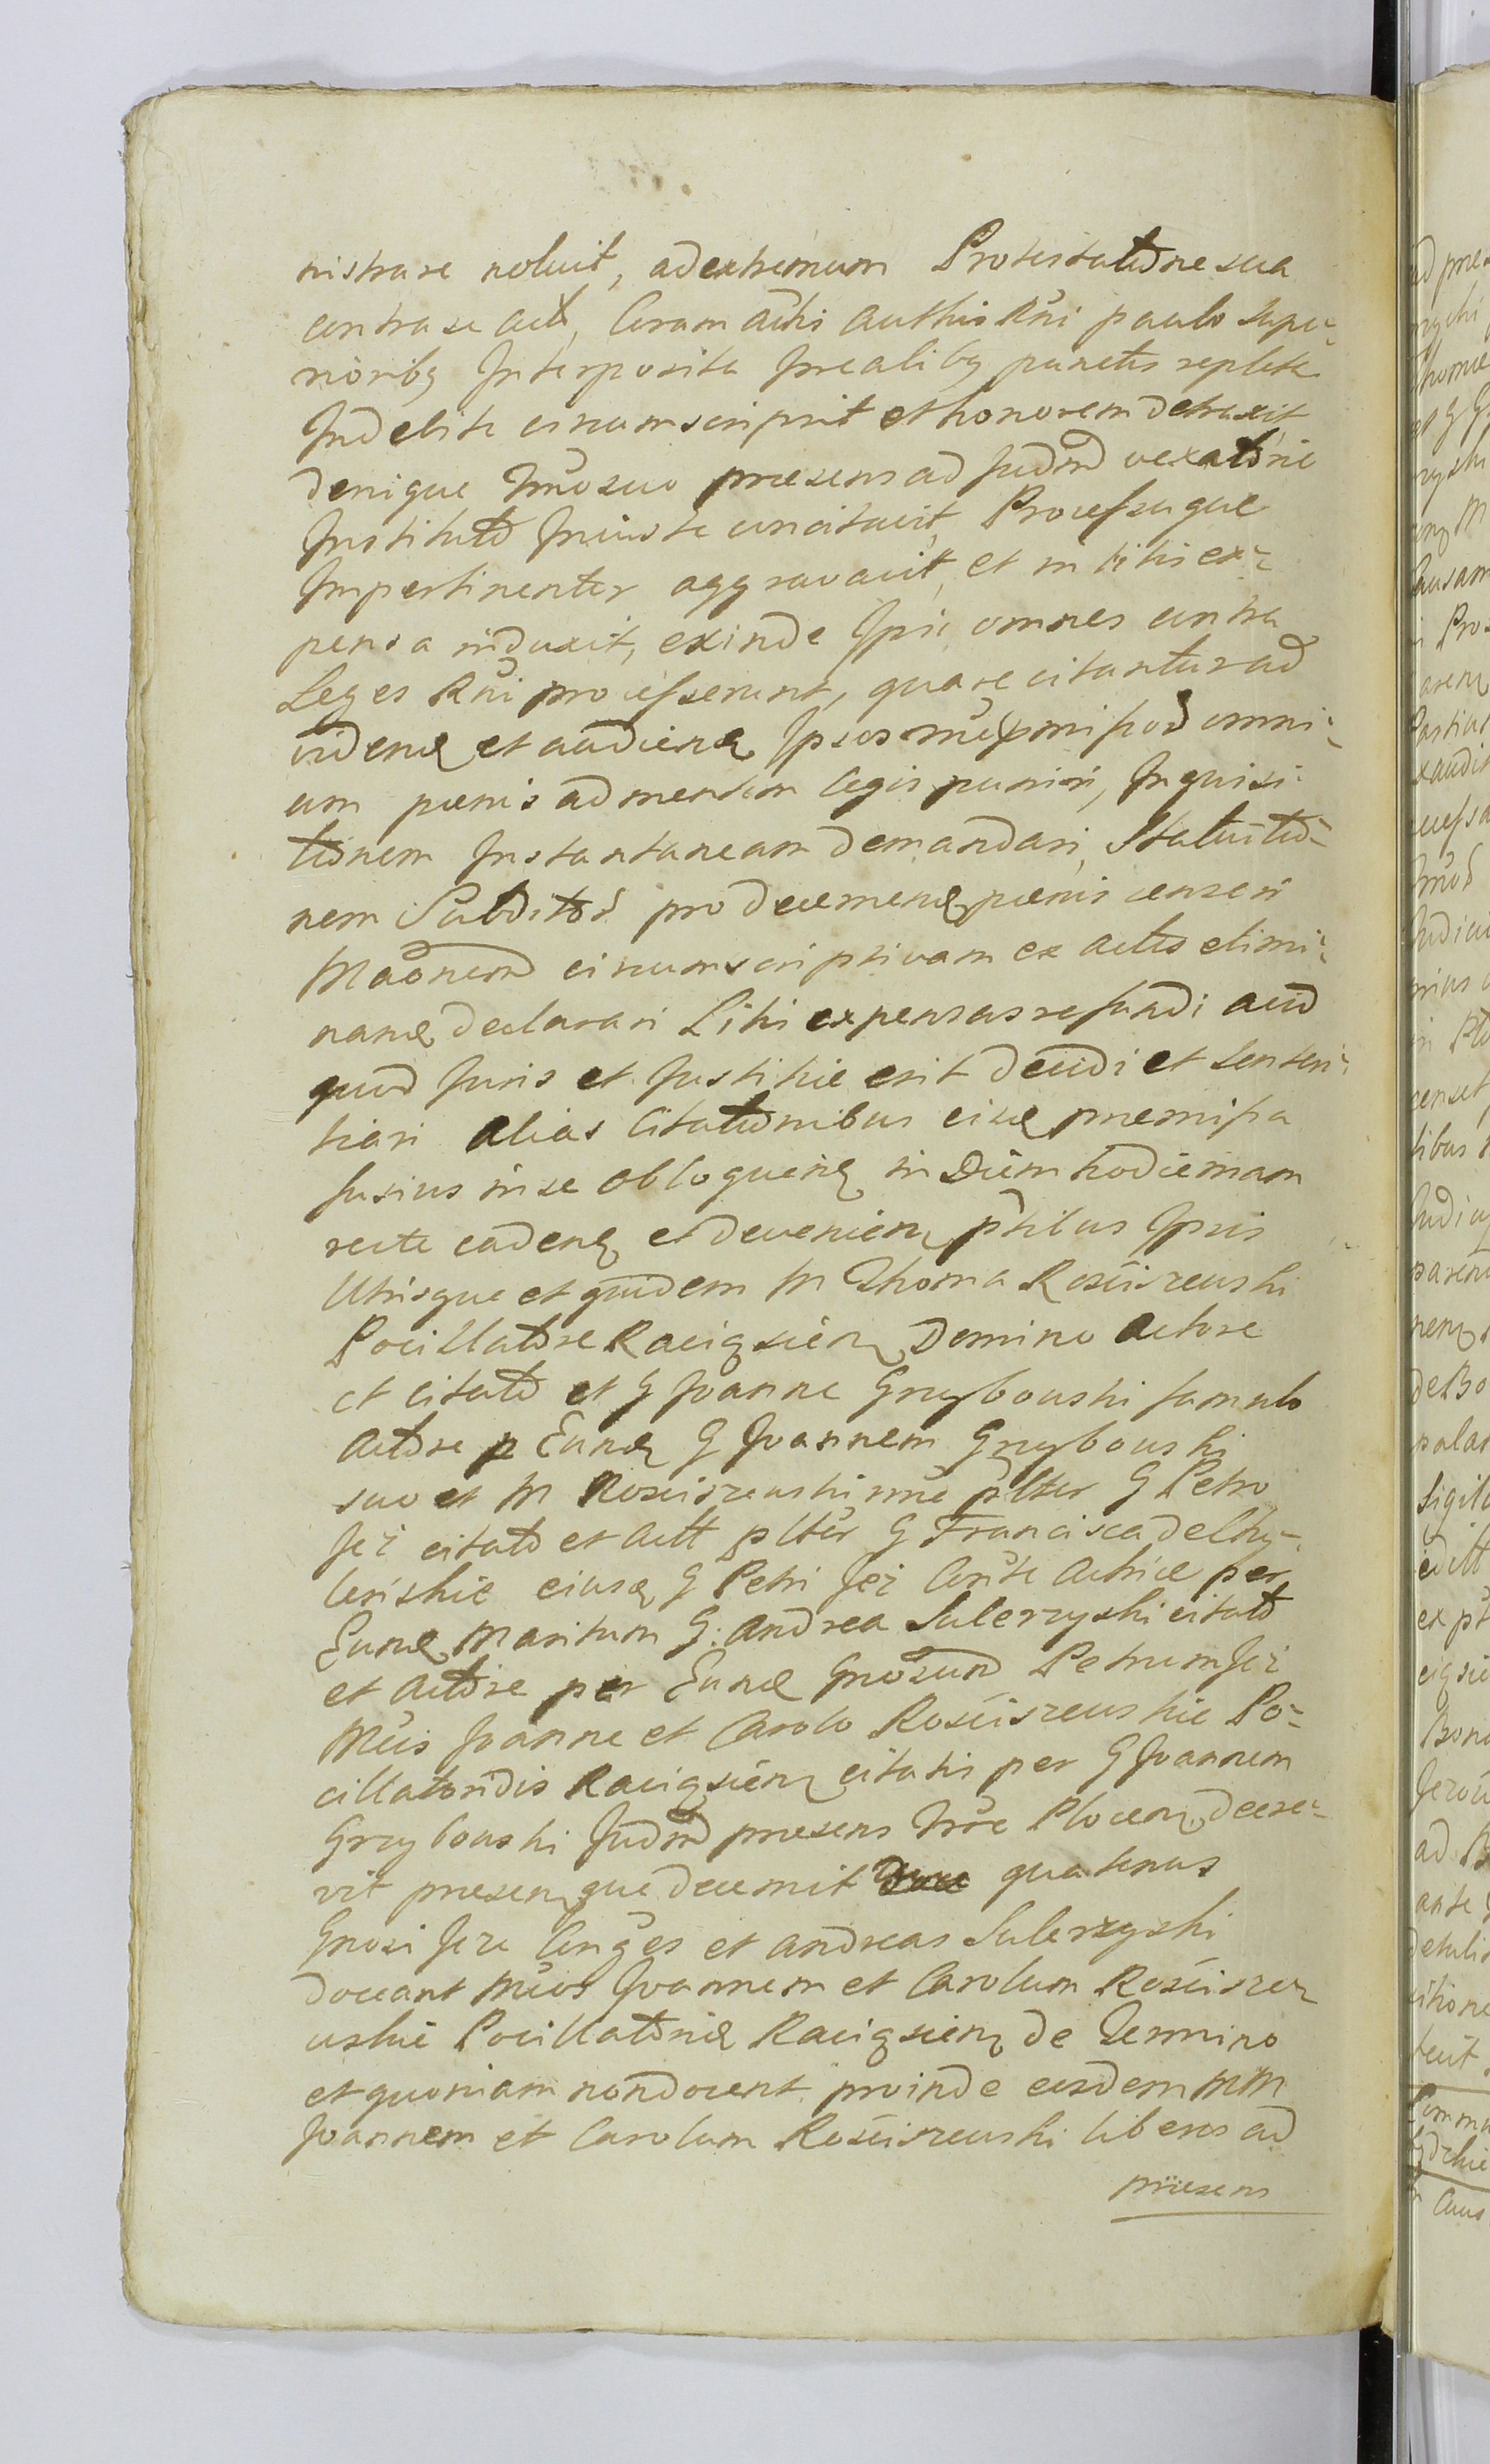 nistrare noluit, ad extremum Protestatōne sua
contra se actt, Coram actis authcis Rñi paulo supe-
rioribg Interposita Irrealibg punctis repleta
Indebite circumscripsit et honorem detraxit
denique Trñō suo præsens ad Judm̄d vexatōrie
Institutō Iniuste concitavit, Processuque
Impertinenter aggravavit, et in litis ex-
pensa induxit, exinde Ipsi omnes contra
Leges Rñi processerunt, quare citantur ad
videnđ et audienđ Ipsos p̄missod omni-
um pœnis ad mentem legis puniri, Inquisi-
tiōnem Instantaneam demandari, Statuitiō-
nem Subditod pro decernenđ pœnis censeri
Mãonem circumscriptivam ex actis elimi-
nanđ declarari Litis expensas refundi aliud
quod Juris et Justitiæ erit decidi et senten-
tiari alias Citatiōnibus eisđ præmissa
fusius in se obloquenđ in Diem hodiernam
recte cadenđ et devenien p̄tibus Ipsis
Utrisque et quidem M Thoma Rosciszewski
Pocillatōre Raciązien Domino Actore
et citatō et G Joanne Grzybowski famulo
Actōre p Eunđ G Joannem Grzybowski
suo et M Rosciszewski nñe p̄lter G Petro
Jeż citatō et actt p̄lter G Francisca de Chy-
lińskie eiusđ G Petri Jeż Conste Actrice per
Eunđ Maritum G: Andrea Sulerzyski citatō
et actōre per Eunđ Gnosum Petrum Jeż
Mcis Joanne et Carolo Rosciszewskie Po-
cillatoridis Raciązien citatis per G Joannem
Grzybowski Judm̄d præsens Trræ Plocen decre-
vit præsenque decernit quatenus
Gnosi Jeże Conges et Andreas Sulerzyski
doceant Mcos Joannem et Carolum Roscisze-
wskie Pocillatoridđ Raciązien de Termino
et quoniam non docent proinde eosdem MM
Joannem et Carolum Rosciszewski liberos ad
præsens